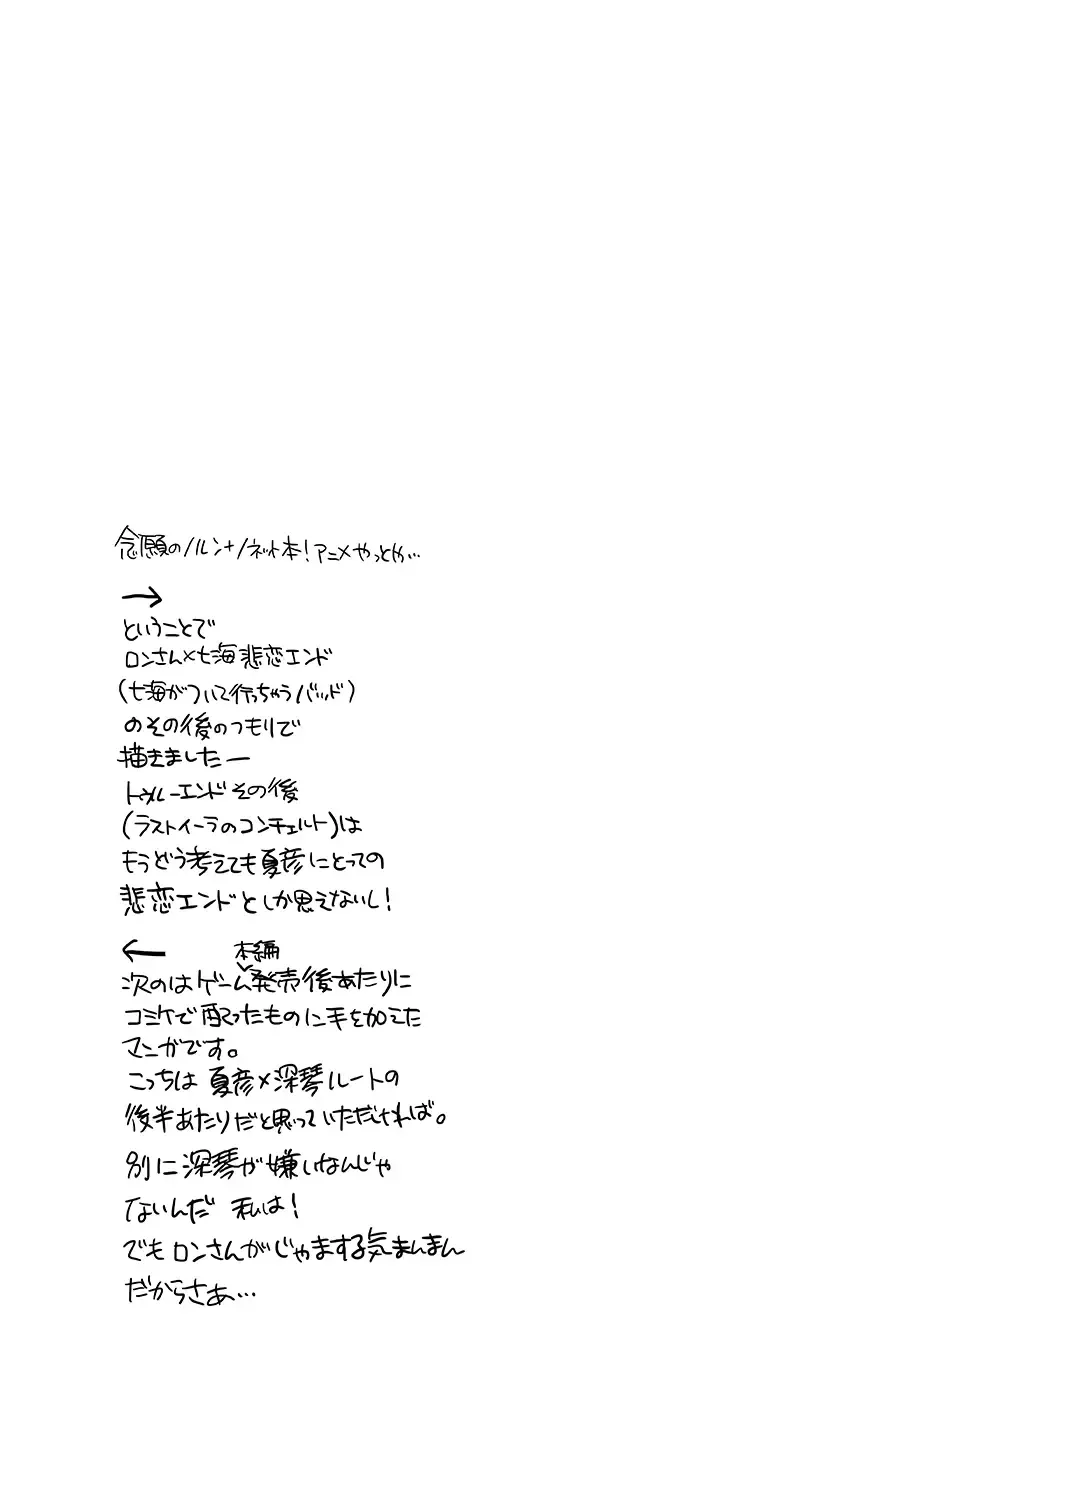 念願のノルン+ノネット本!アニメやっとや…
→
ということで
ロンさん×七海悲恋エンド
(七海がついて行っちゃうバッド)
のその後のつもりで
描きましたー
トゥルーエンドその後
(ラストイーラのコンチェルト)は
もうどう考えても夏彦にとっての
悲恋エンドとしか思えないし!
←
本編
次のはゲーム発売後あたりに
コミケで配ったものに手を加えた
マンガです。
こっちは夏彦×深琴ルートの
後半あたりだと思っていただければ。
別に深琴が嫌いなんじゃ
ないんだ 私は!
でもロンさんがじゃまする気まんまん
だからさぁ…